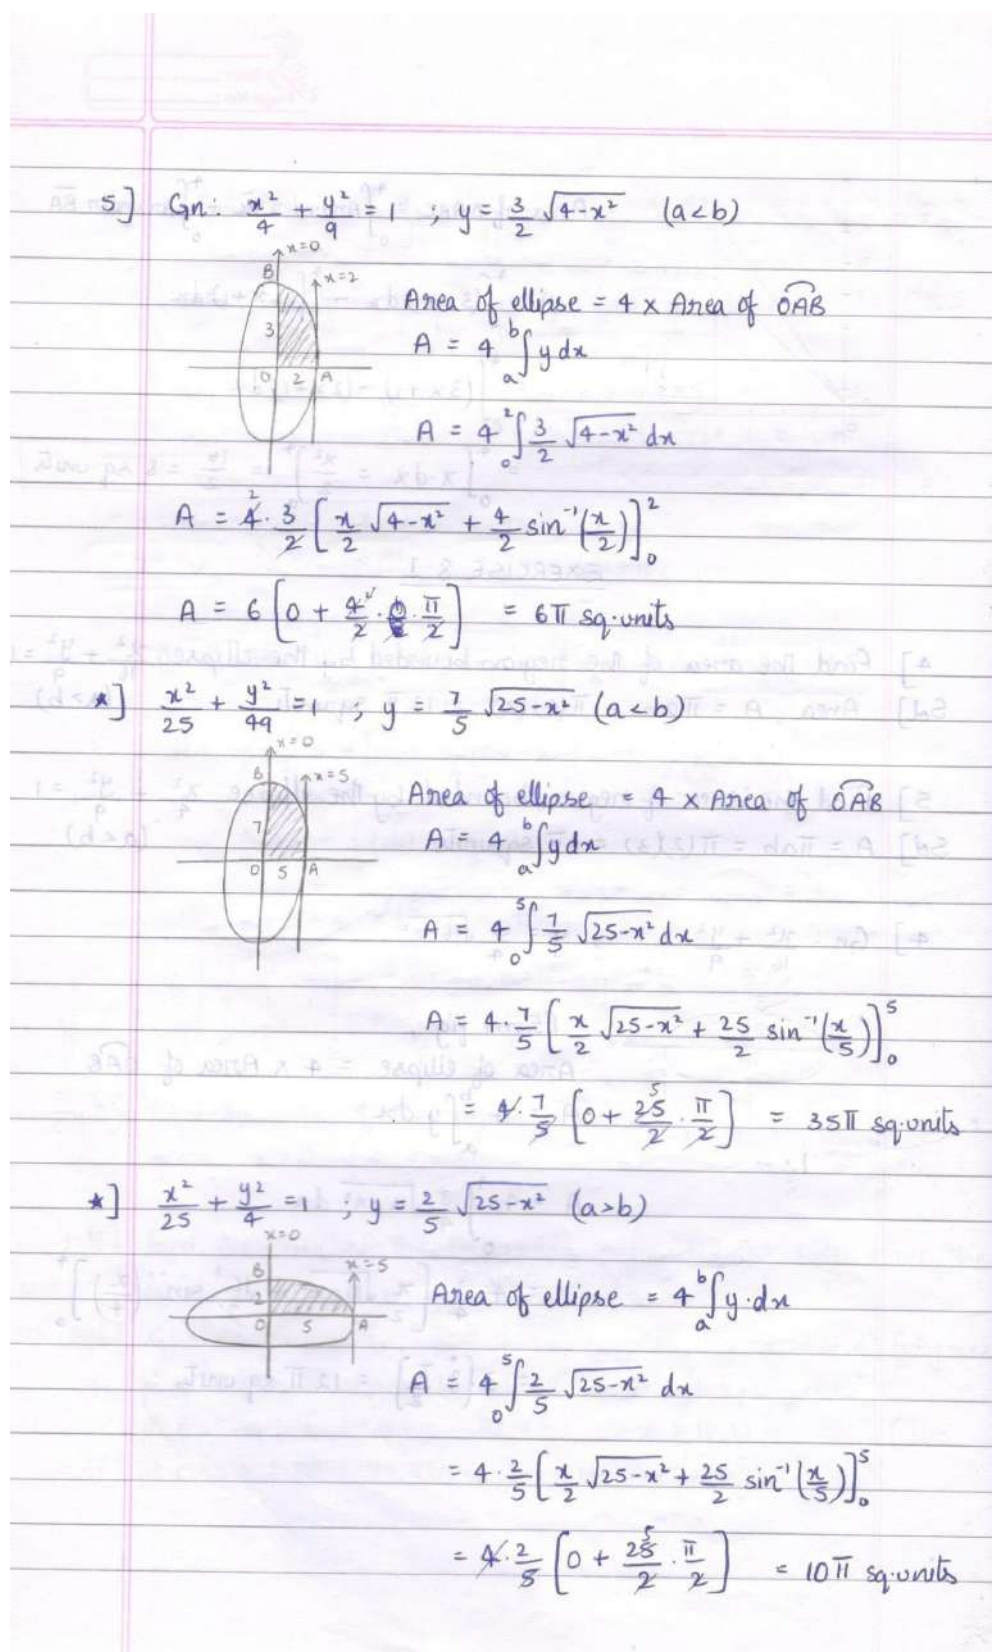 5] Gn: x²/4 + y²/9 = 1 ; y = 3/2 √(4-x²) (a<b)
x=0
B
x=2
3
O 2 A
Area of ellipse = 4 x Area of OAB
A = 4 a∫b y dx
A = 4 0∫2 3/2 √(4-x²) dx
A = 4·3/2 [x/2 √(4-x²) + 4/2 sin⁻¹(x/2)]₀²
2
A = 6 [0 + 4/2 · π/2] = 6π sq.units
*] x²/25 + y²/49 = 1 ; y = 7/5 √(25-x²) (a<b)
x=0
B
x=5
7
O 5 A
Area of ellipse = 4 x Area of OAB
A = 4 a∫b y dx
A = 4 0∫5 7/5 √(25-x²) dx
A = 4·7/5 [x/2 √(25-x²) + 25/2 sin⁻¹(x/5)]₀⁵
5
= 4·7/5 [0 + 25/2 · π/2] = 35π sq.units
*] x²/25 + y²/4 = 1 ; y = 2/5 √(25-x²) (a>b)
x=0
B
x=5
2
O 5 A
Area of ellipse = 4 a∫b y·dx
A = 4 0∫5 2/5 √(25-x²) dx
= 4·2/5 [x/2 √(25-x²) + 25/2 sin⁻¹(x/5)]₀⁵
5
= 4·2/5 [0 + 25/2 · π/2] = 10π sq.units